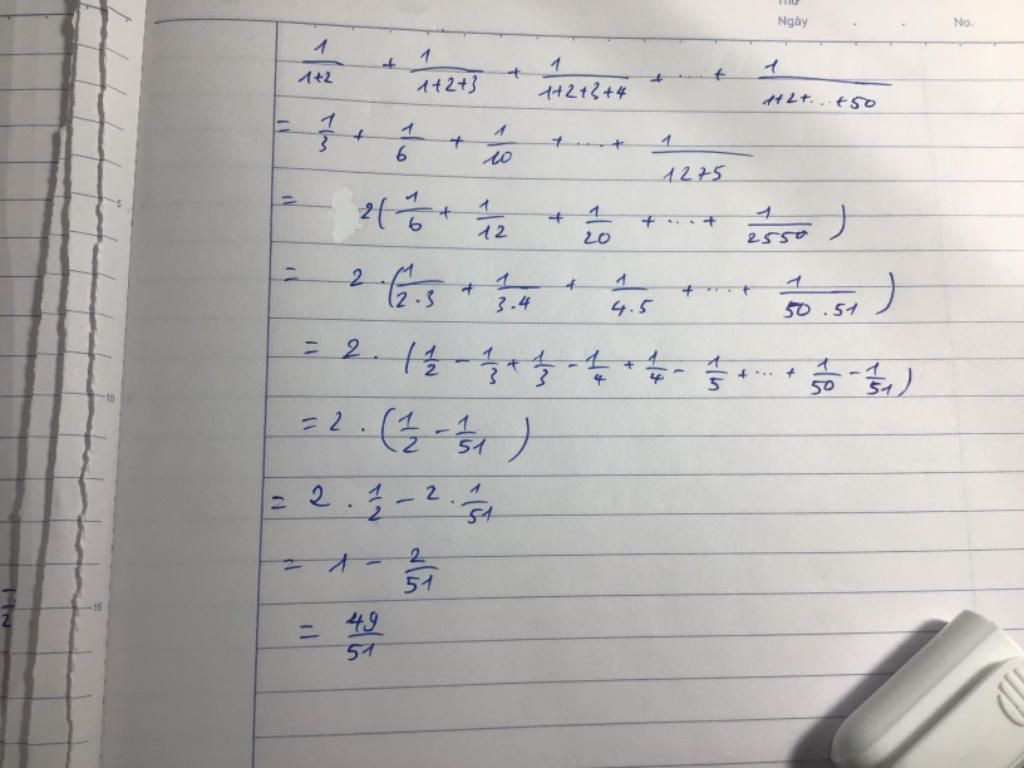 Thứ
Ngày . . No.
1/(1+2) + 1/(1+2+3) + 1/(1+2+3+4) + ... + 1/(1+2+...+50)
= 1/3 + 1/6 + 1/10 + ... + 1/1275
= 2(1/6 + 1/12 + 1/20 + ... + 1/2550)
= 2 . (1/(2.3) + 1/(3.4) + 1/(4.5) + ... + 1/(50.51))
= 2 . (1/2 - 1/3 + 1/3 - 1/4 + 1/4 - 1/5 + ... + 1/50 - 1/51)
= 2 . (1/2 - 1/51)
= 2 . 1/2 - 2 . 1/51
= 1 - 2/51
= 49/51
5
10
15
1/2